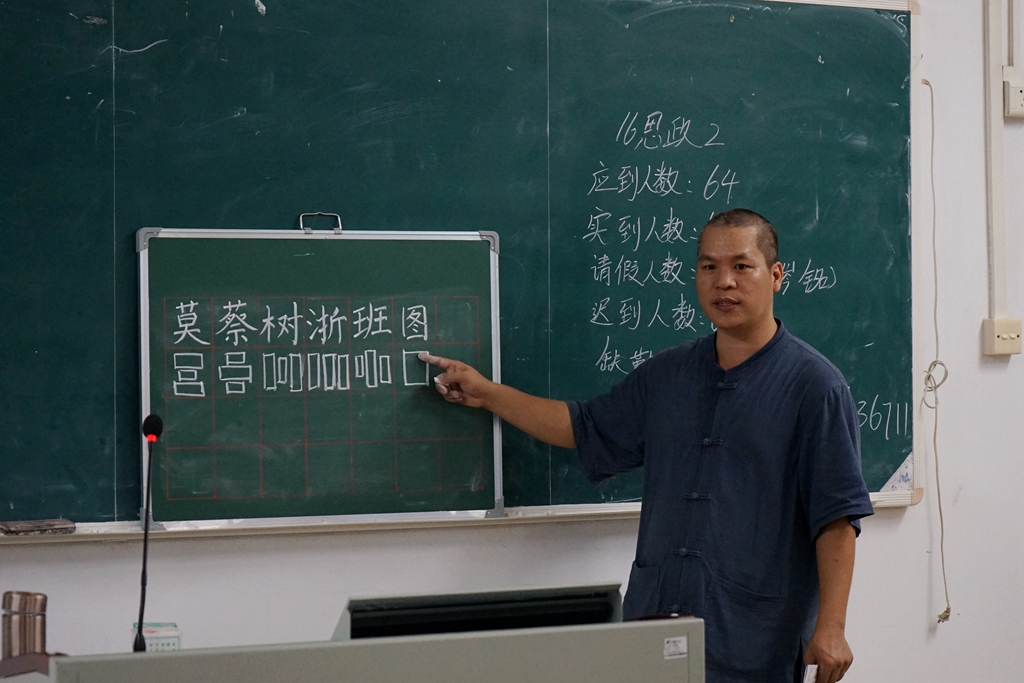 莫蔡树浙班图
16思政2
应到人数：64
实到人数：
请假人数：
迟到人数：
缺勤
36711